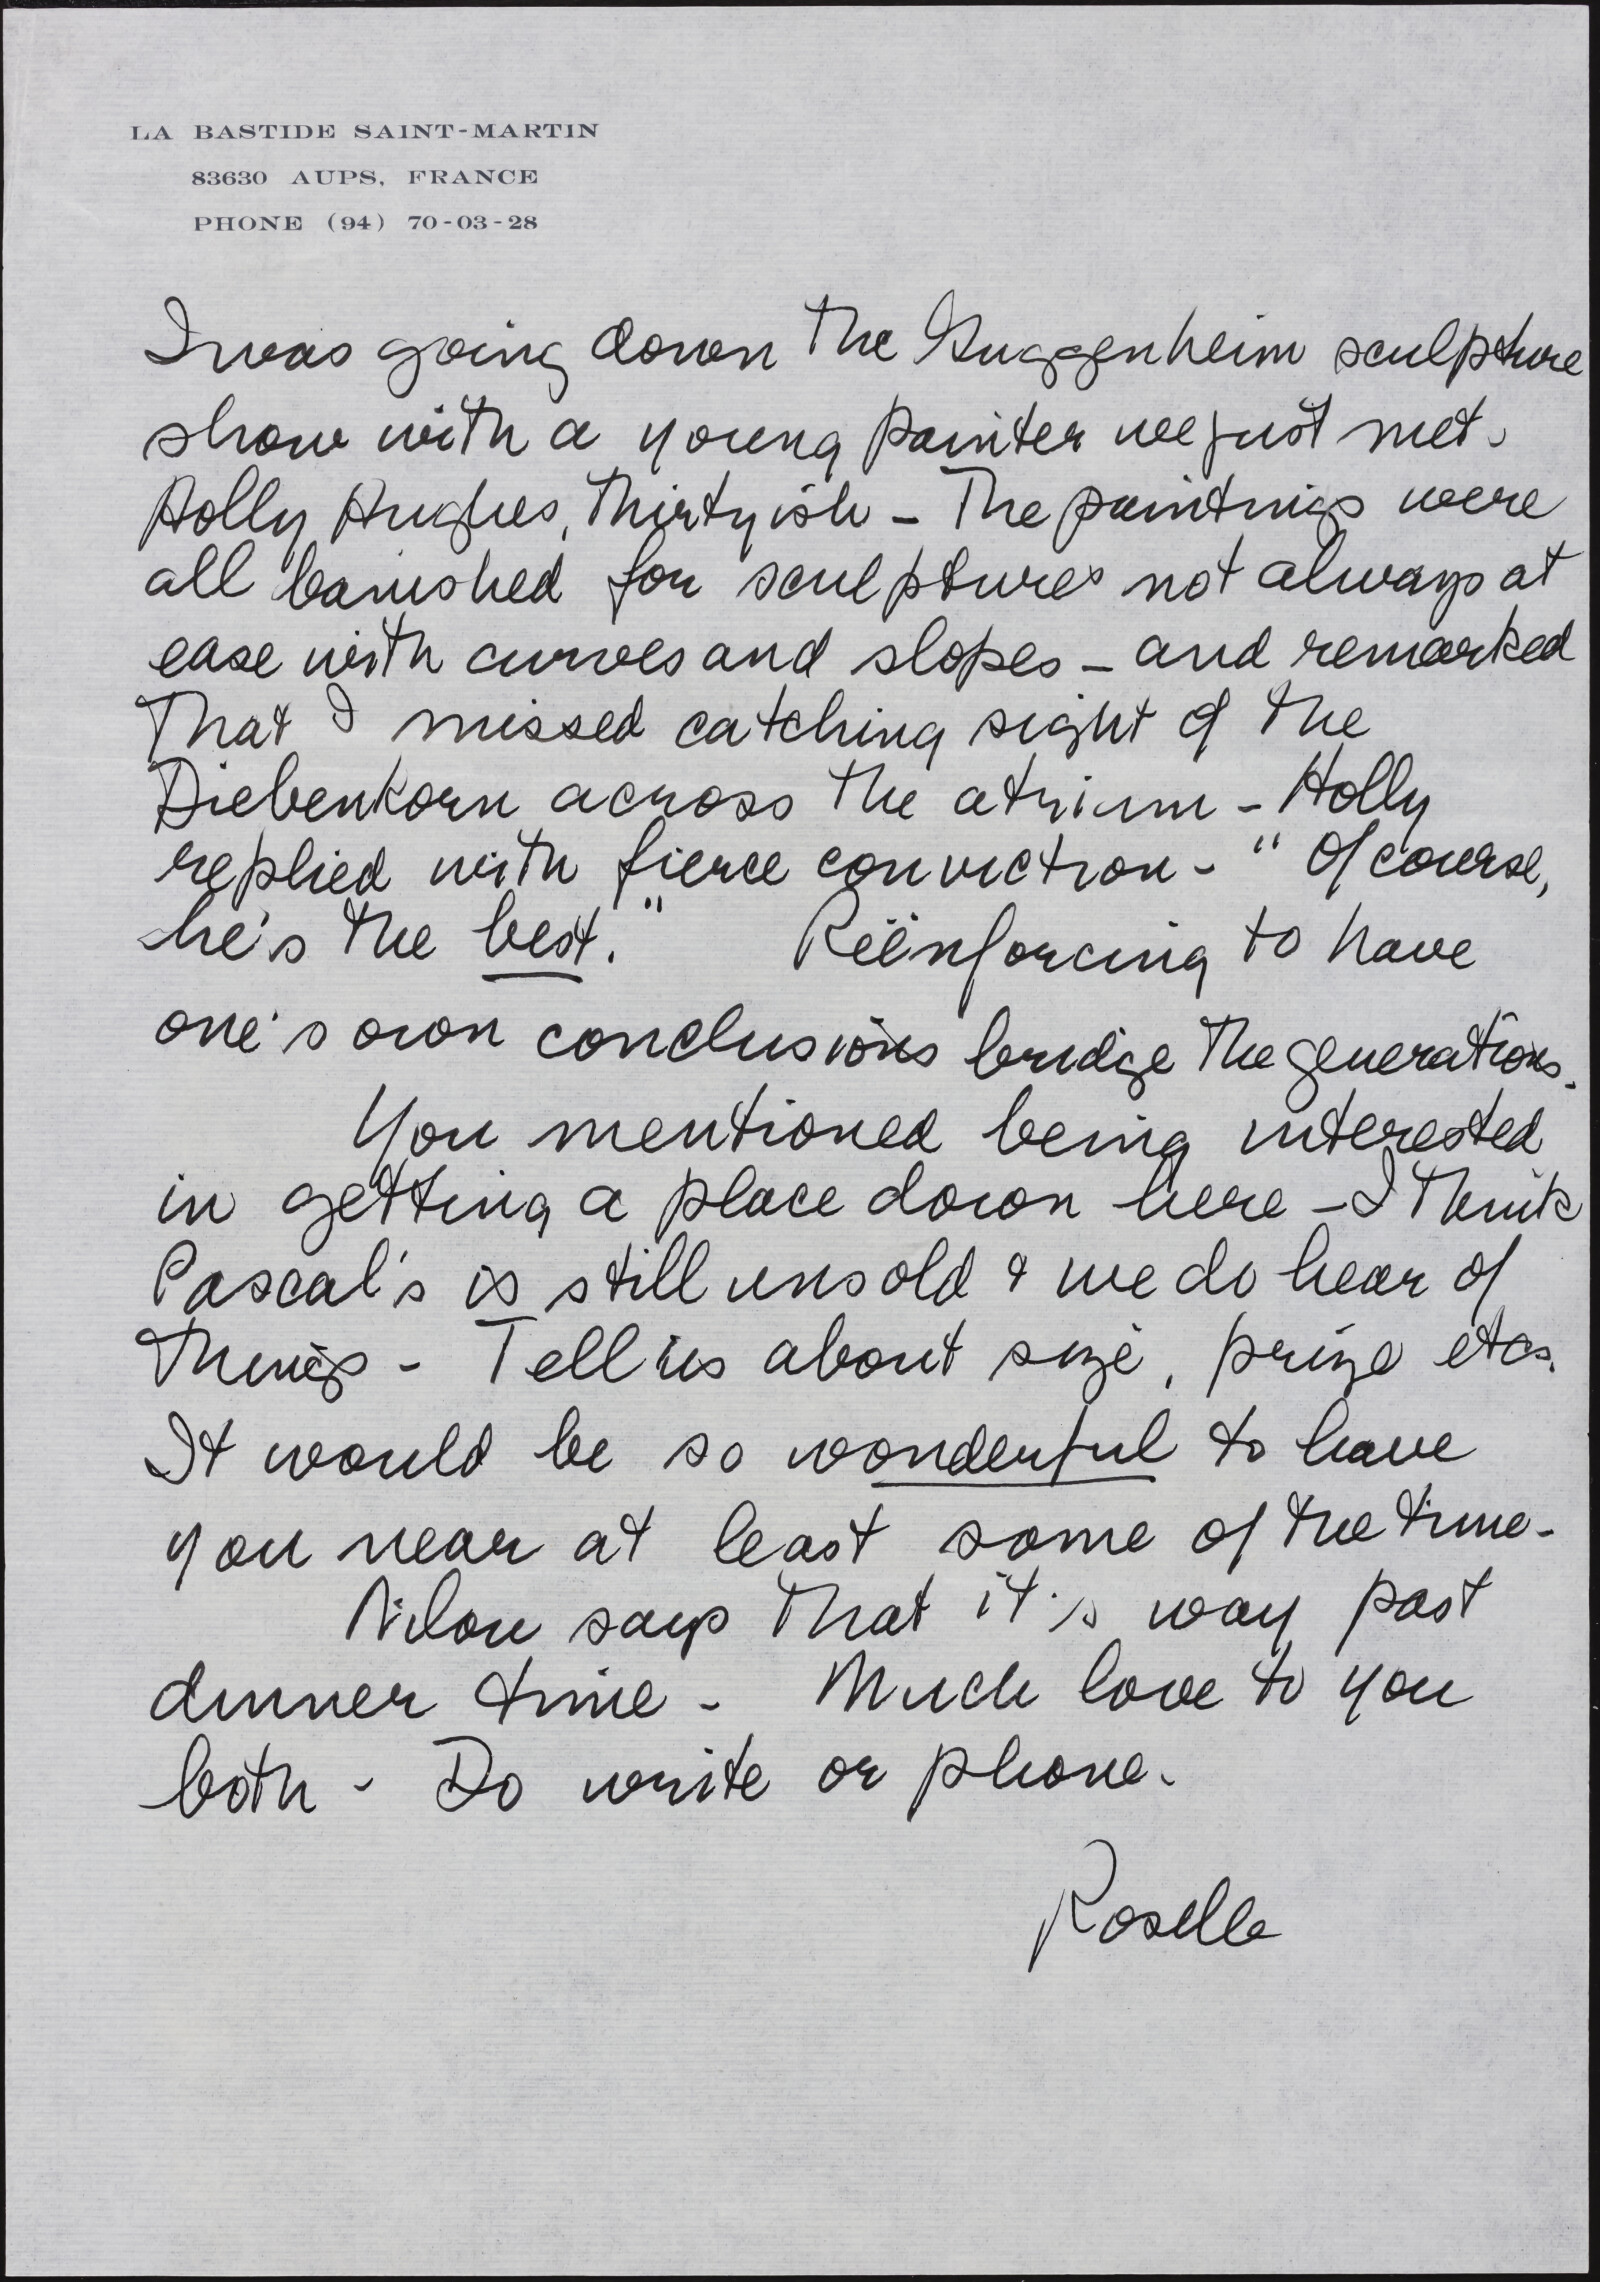 LA BASTIDE SAINT-MARTIN
83630 AUPS, FRANCE
PHONE (94) 70-03-28
I was going down the Guggenheim sculpture
show with a young painter we just met.
Holly Hughes, thirtyish – The paintings were
all banished for sculptures not always at
ease with curves and slopes – and remarked
that I missed catching sight of the
Diebenkorn across the atrium – Holly
replied with fierce conviction – "Of course,
he's the best." Reënforcing to have
one's own conclusions bridge the generations.
You mentioned being interested
in getting a place down here – I think
Pascal's is still unsold & we do hear of
things – Tell us about size, prize etc.
It would be so wonderful to have
you near at least some of the time –
Nilou says that it's way past
dinner time – Much love to you
both – Do write or phone.
Roselle